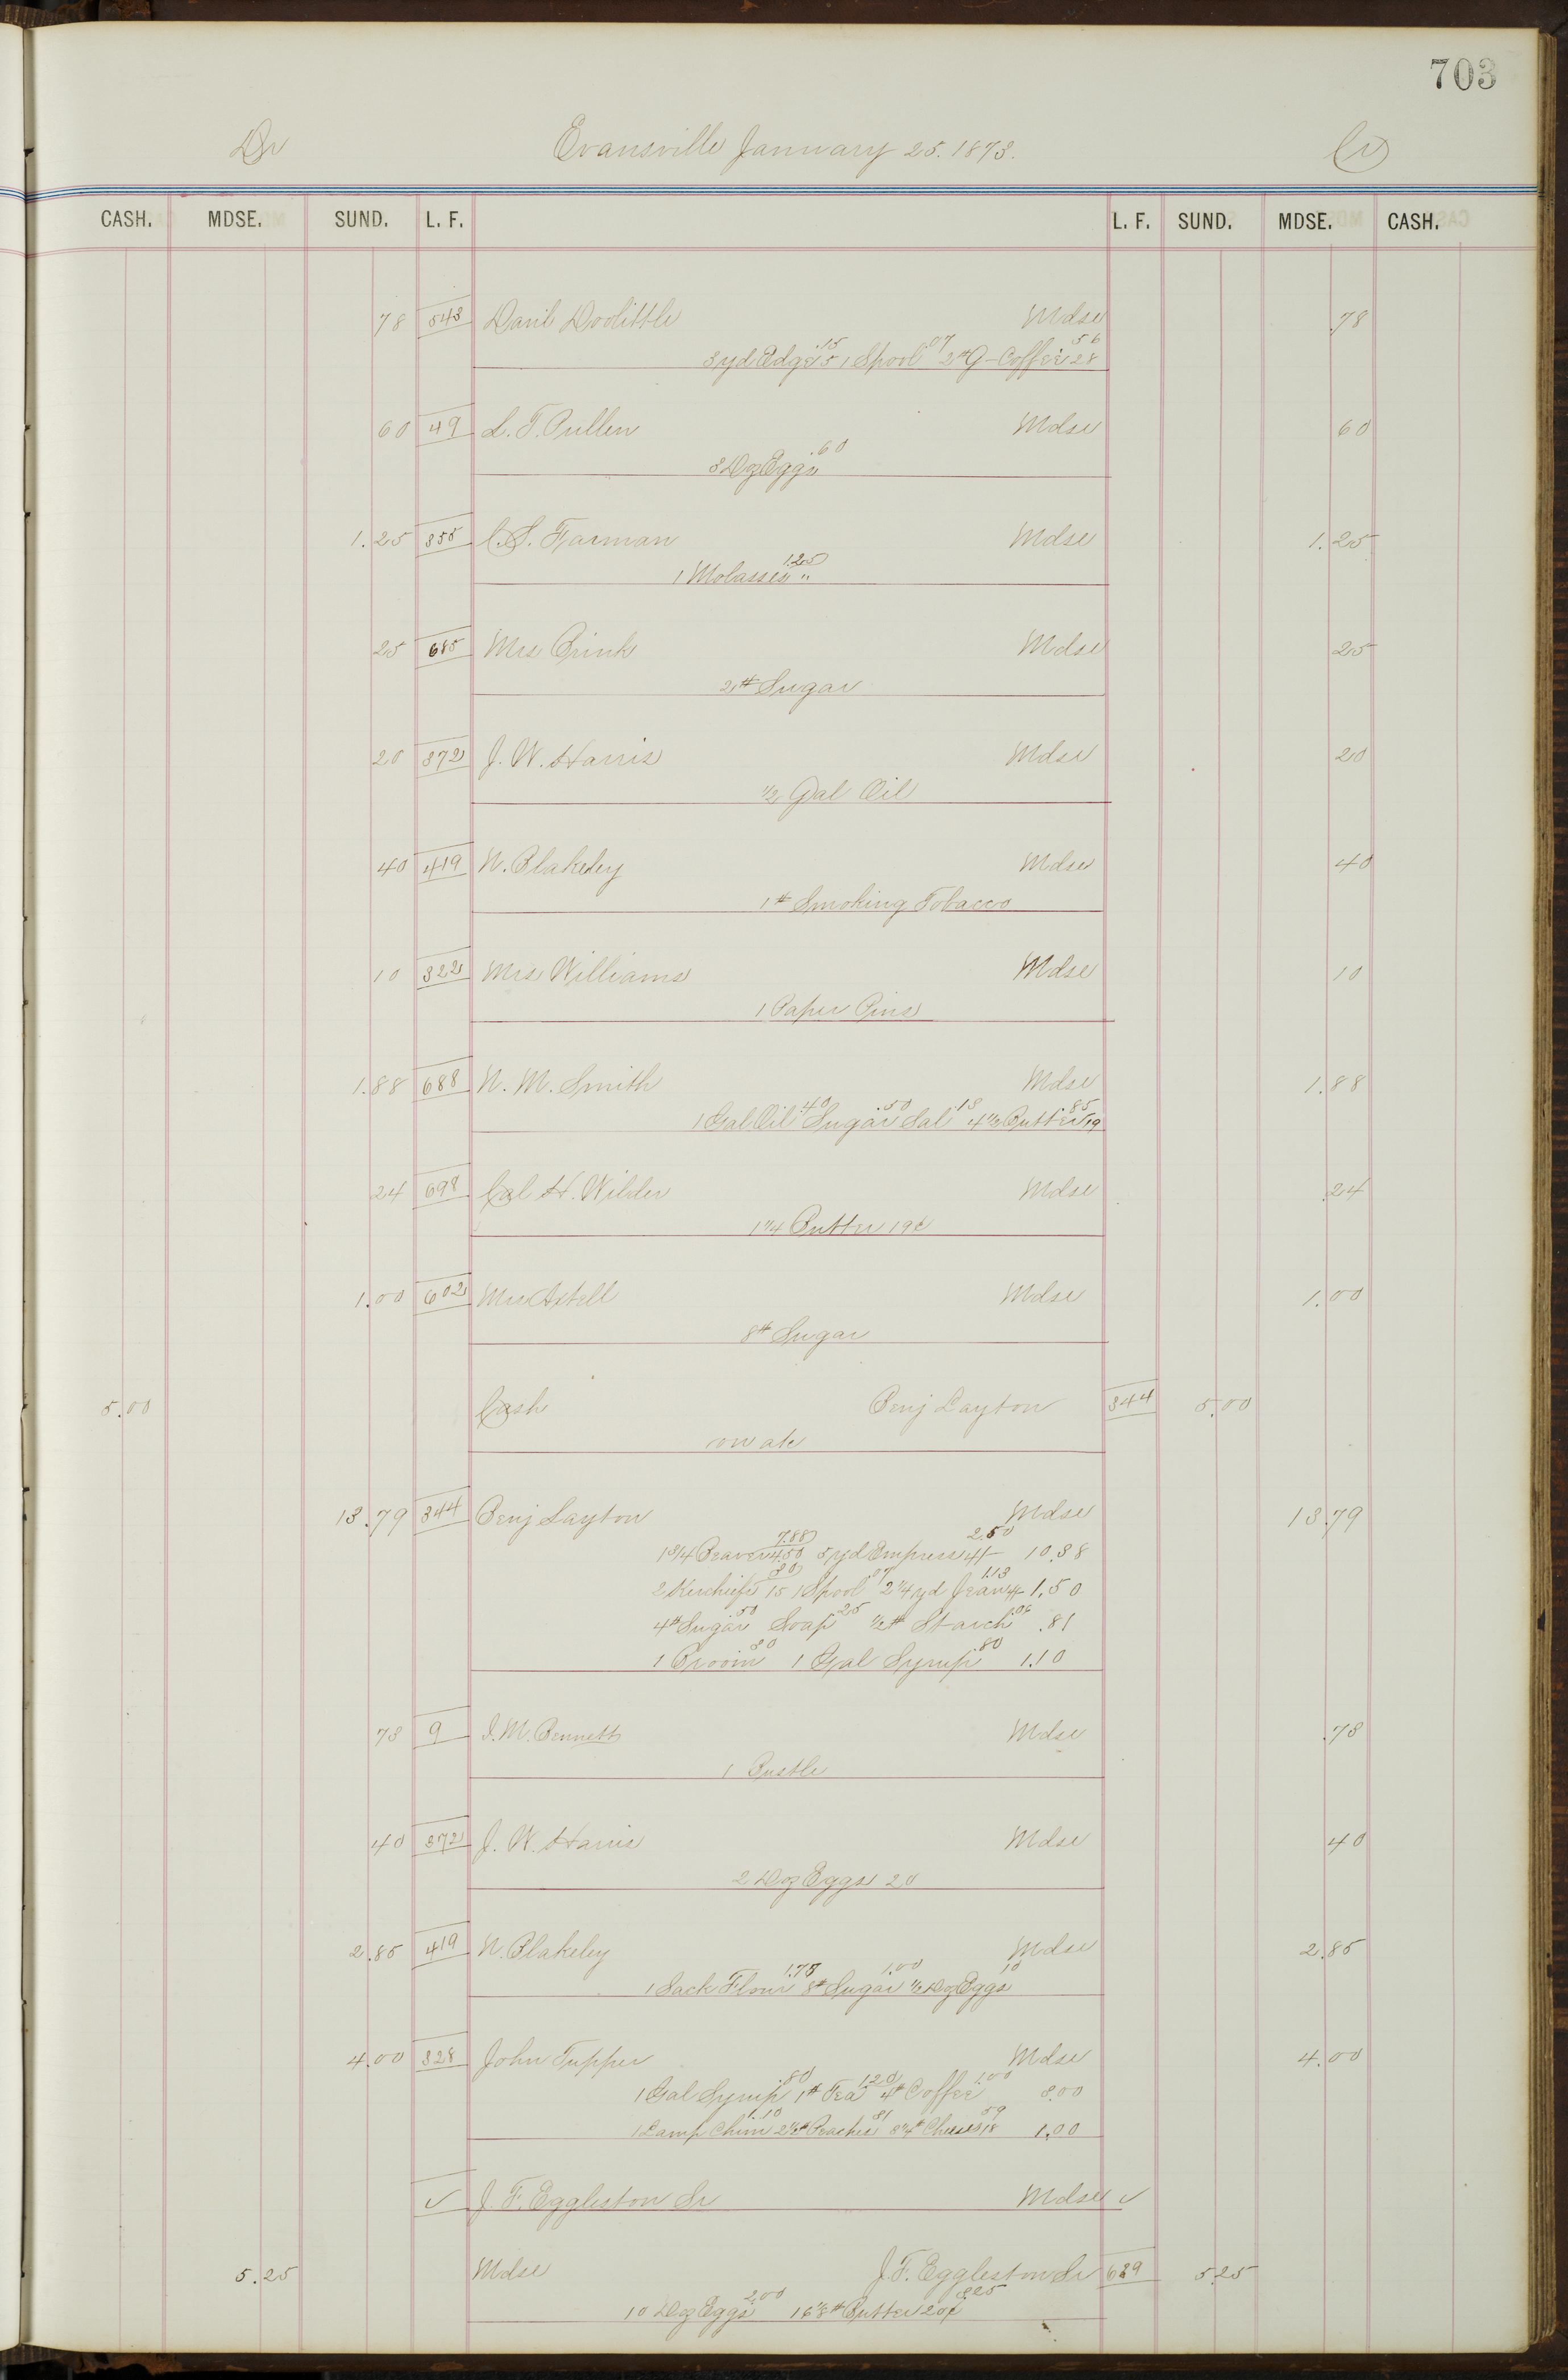 703
Dr Evansville January 25. 1873. Cr
CASH. MDSE. SUND. L. F. L. F. SUND. MDSE. CASH.
78 543 Danl Doolittle Mdse .78
3 yd Edge .15 5 1 Spool .07 2# G-Coffee .56 28
60 49 L. T. Pullen Mdse 60
3 Doz Eggs .60
1.25 355 C. S. Farman Mdse 1.25
1 Molasses 1.25 "
25 685 Mrs Brink Mdse 25
2# Sugar
20 372 J. W. Harris Mdse 20
1/2 Gal Oil
40 419 N. Blakeley Mdse 40
1# Smoking Tobacco
10 322 Mrs Williams Mdse 10
1 Paper Pins
1.88 688 N. M. Smith Mdse 1.88
1 Gal Oil .40 Sugar .50 Sal .13 4 1/2 Butter .85 19
24 698 Cal H. Wilder Mdse .24
1 1/4 Butter 19¢
1.00 602 Mrs Axtell Mdse 1.00
8# Sugar
5.00 Cash Benj Layton 344 5.00
on a/c
13.79 344 Benj Layton Mdse 13.79
1 3/4 Beaver 7.88 4.50 5 yd Empress 2.50 4/- 10.38
2 Kerchiefs .30 15 1 Spool .07 2 1/4 yd Jean 1.13 4/- 1.50
4# Sugar .50 Soap .25 1/2# Starch .06 .81
1 Broom .30 1 Gal Syrup .80 1.10
73 9 I. M. Bennett Mdse .73
1 Bustle
40 372 J. W. Harris Mdse 40
2 Doz Eggs 20
2.85 419 N. Blakeley Mdse 2.85
1 Sack Flour 1.75 8# Sugar 1.00 1/2 Doz Eggs 10
4.00 328 John Tupper Mdse 4.00
1 Gal Syrup .80 1# Tea 1.20 4# Coffee 1.00 3.00
1 Lamp Chim .10 2 1/2# Peaches .31 3 1/4# Cheese .59 18 1.00
✓ J. F. Eggleston Sr Mdse ✓
5.25 Mdse J. F. Eggleston Sr 629 5.25
10 Doz Eggs 2.00 16 1/8# Butter 20¢ 3.25